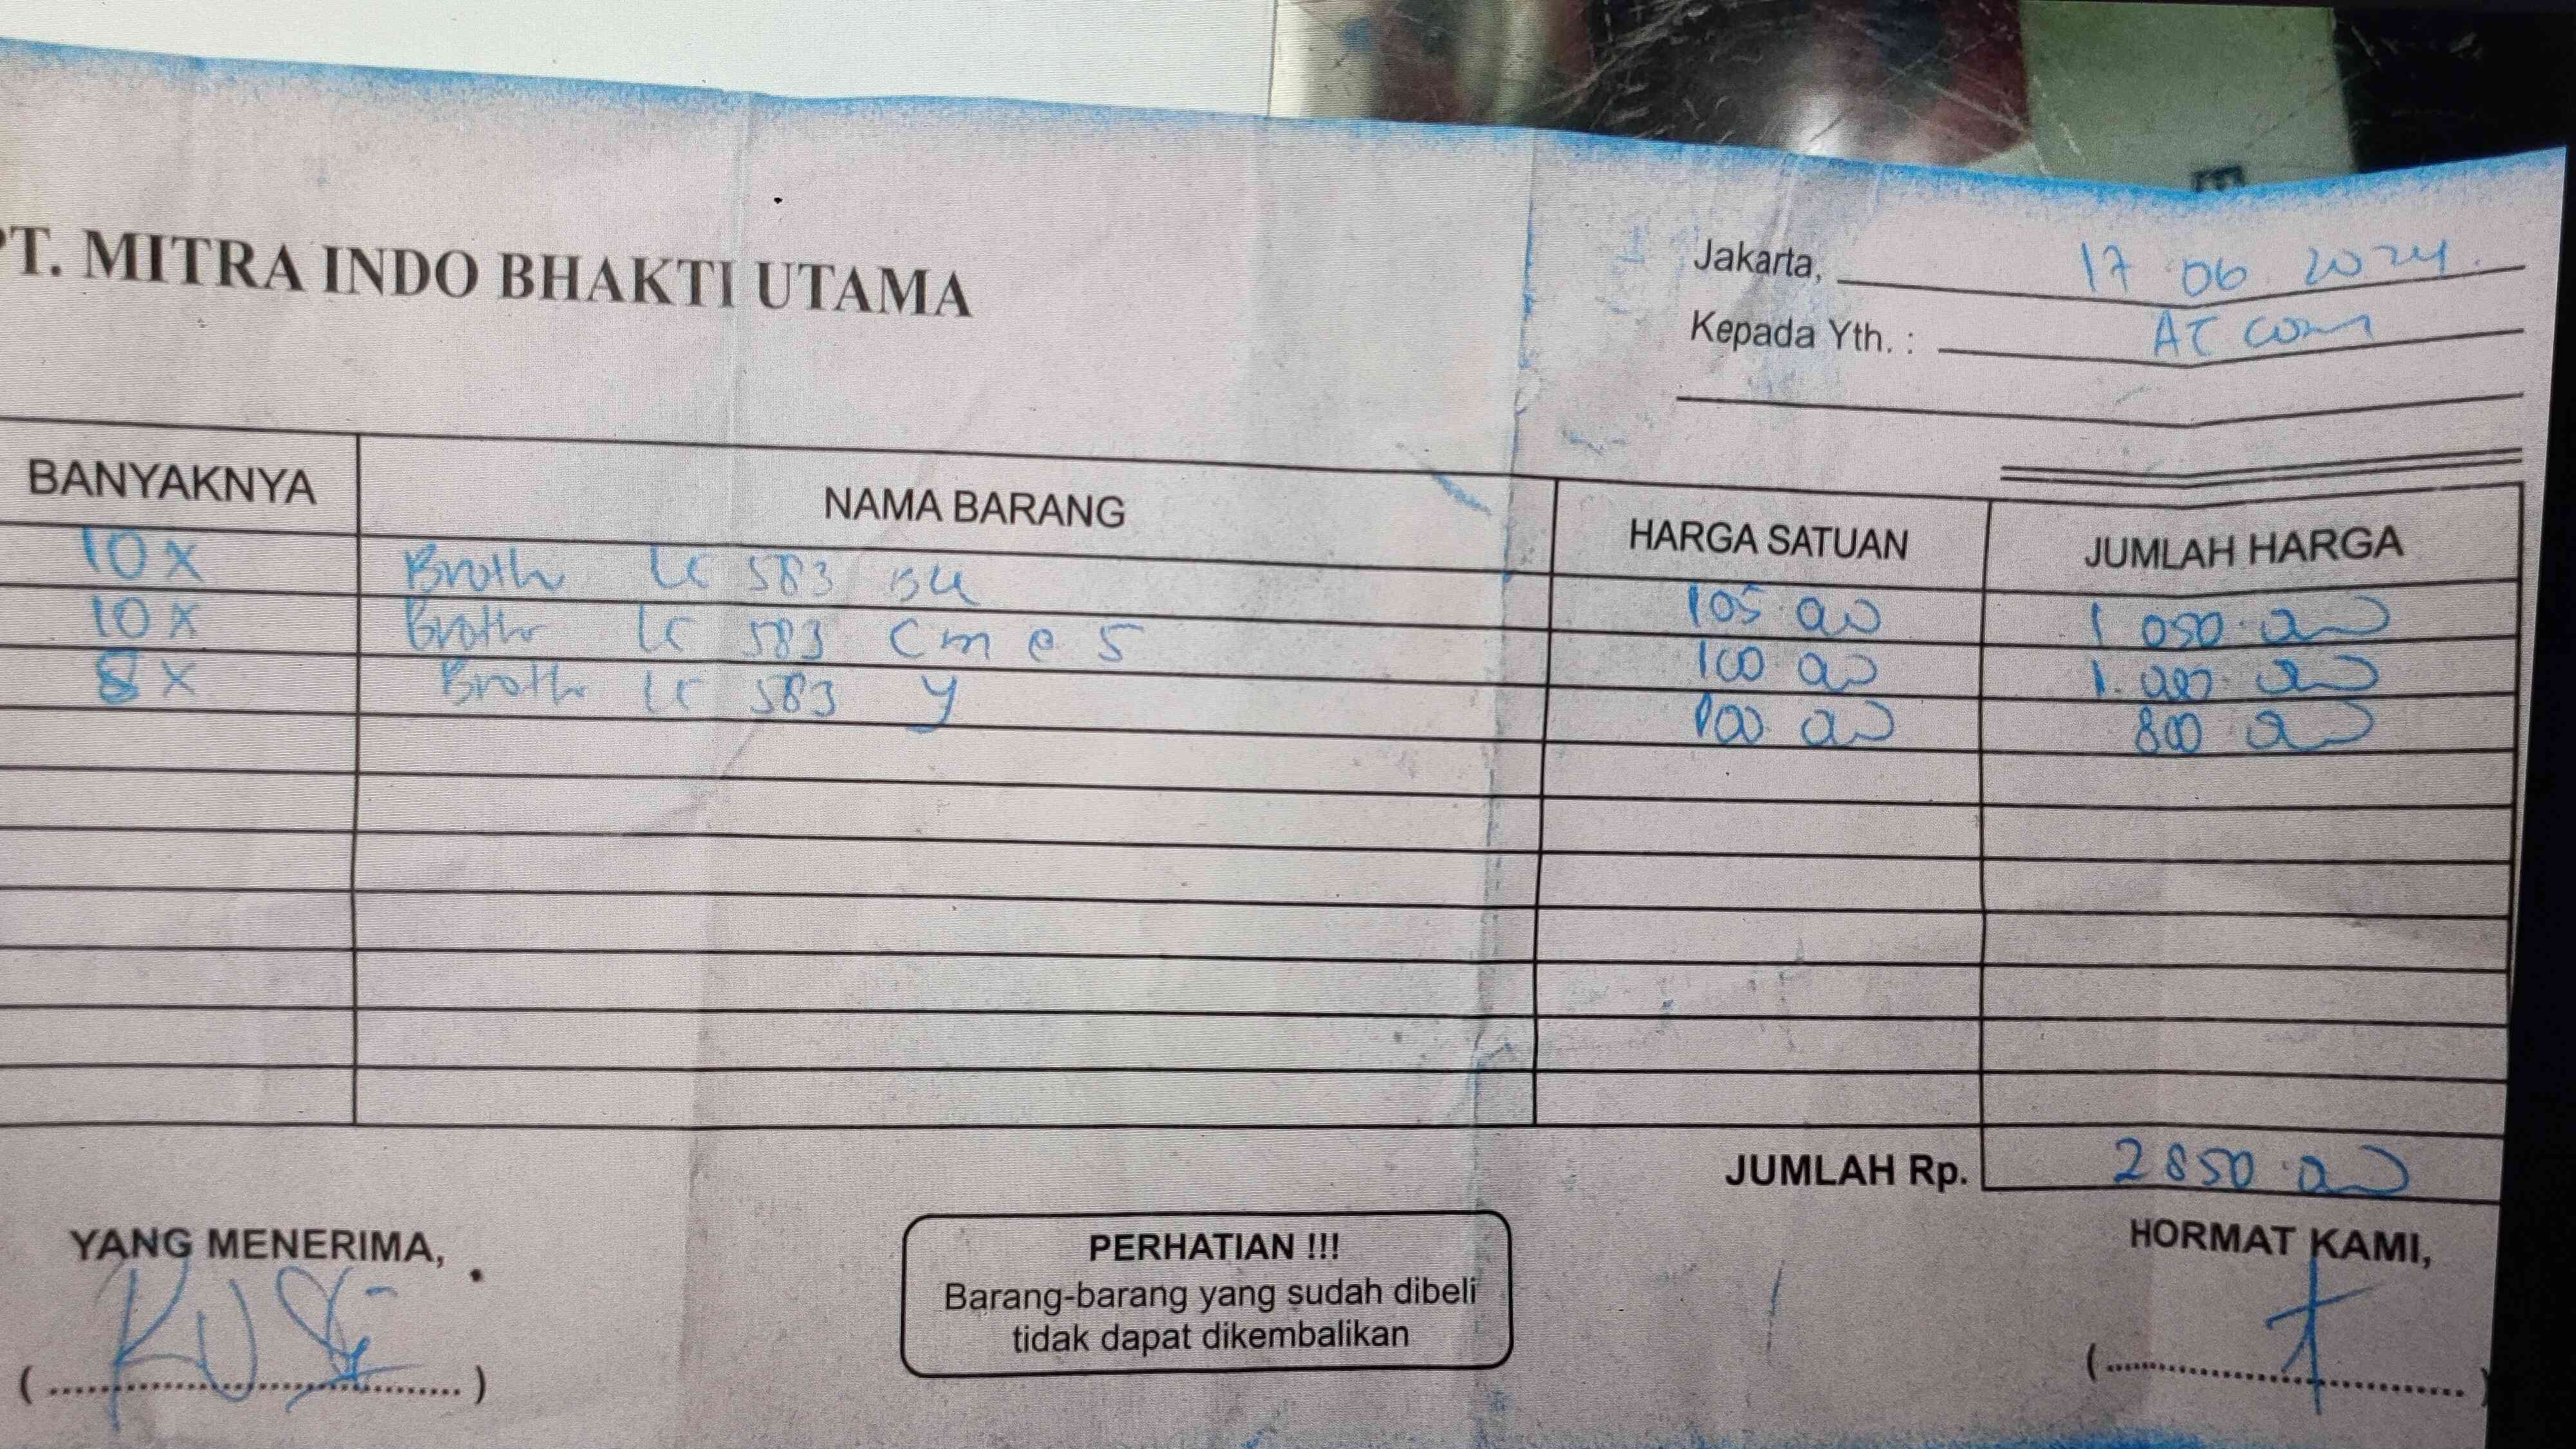 PT. MITRA INDO BHAKTI UTAMA
Jakarta, 17 06 2024.
Kepada Yth. : AT com
BANYAKNYA NAMA BARANG HARGA SATUAN JUMLAH HARGA
10 x Broth LC 583 BK 105.000 1.050.000
10 x Broth LC 583 C m @ 5 100.000 1.000.000
8 x Broth LC 583 Y 100.000 800.000
JUMLAH Rp. 2850.000
YANG MENERIMA,
PERHATIAN !!!
Barang-barang yang sudah dibeli
tidak dapat dikembalikan
HORMAT KAMI,